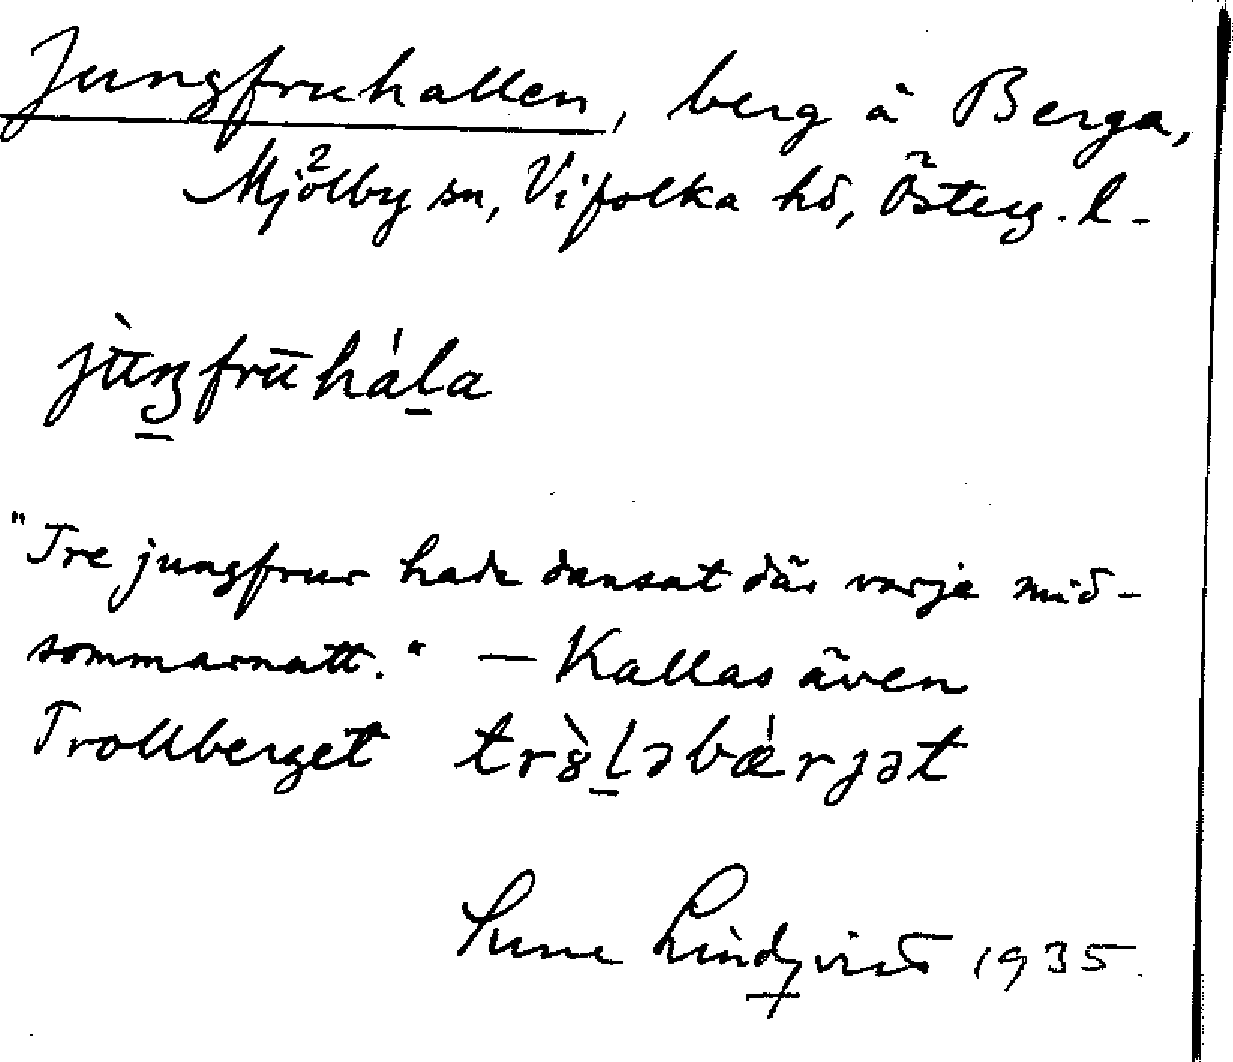 Jungfruhallen, berg å Berga,
Mjölby sn, Vifolka hd, Österg. l.
jùŋfrūhála
"Tre jungfrur hade dansat där varje mid-
sommarnatt." — Kallas även
Trollberget tròlləbǽrjət
Sune Lindqvist 1935.